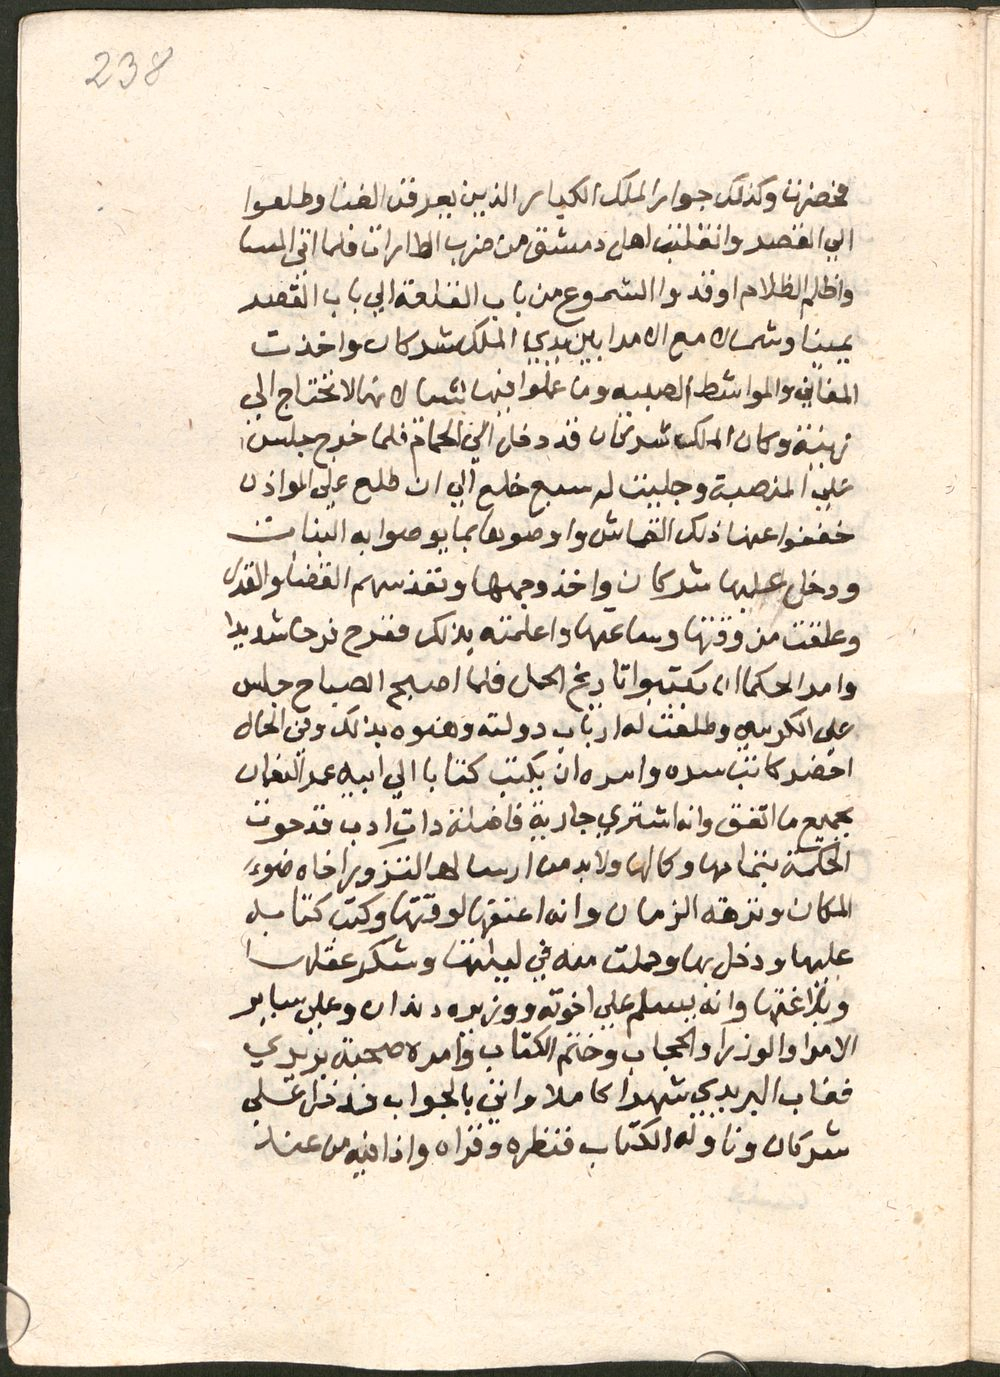 238
فحضرت وكذلك جوار الملك الكبار الذين يعرفن الغنا وطلعوا
الي القصر وانقلبت اهل دمشق من ضرب الطارات فلما اتي المسا
واظلم الظلام اوقدوا الشموع من باب القلعة الي باب القصر
يمينا وشمال مع الامرا بين يدي الملك شركان واخذت
المغاني والمواشط الصبيه وما عملوا فيها شيا لانها لا تحتاج الي
زينة وكان الملك شركان قد دخل الي الحمام فلما خرج جلس
علي المنصبة وجليت له سبع خلع الي ان طلع علي الموادن
خففوا عنها ذلك القماش واوصوها بما يوصوا به البنات
ودخل عليها شركان واخذ وجهها ونفذ سهم القضا والقدر
وعلقت من وقتها وساعتها واعلمته بذلك ففرح فرحا شديدا
وامر الحكما ان يكتبوا تاريخ الحمل فلما اصبح الصباح جلس
علي الكرسي وطلعت له ارباب دولته وهنوه بذلك وفي الحال
احضر كاتب سره وامره ان يكتب كتابا الي ابيه عمر النعمان
بجميع ما اتفق وانه اشتري جارية فاضلة ذات ادب قد حوت
الحكمة بتمامها وكمالها ولابد من ارسالها لتزور اخاه ضوء
المكان ونزهة الزمان وانه اعتقها لوقتها وكتب كتابه
عليها ودخل بها وحملت منه في ليلتها وشكر عقلها
وبلاغتها وانه يسلم علي اخوته ووزيره دندان وعلي ساير
الامرا والوزرا والحجاب وختم الكتاب وامره صحبة بريدي
فغاب البريدي شهرا كاملا واتي بالجواب فدخل علي
شركان وناوله الكتاب فنظره وقراه واذا فيه من عند